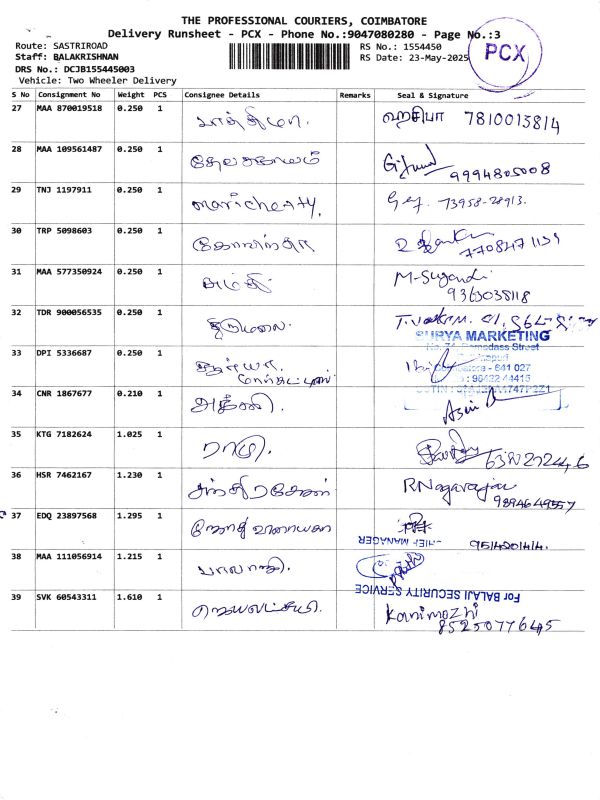 THE PROFESSIONAL COURIERS, COIMBATORE
Delivery Runsheet - PCX - Phone No.:9047080280 - Page No.:3
Route: SASTRIROAD
RS No.: 1554450
Staff: BALAKRISHNAN
RS Date: 23-May-2025
PCX
DRS No.: DCJB155445003
Vehicle: Two Wheeler Delivery
S No Consignment No Weight PCS Consignee Details Remarks Seal & Signature
27 MAA 870019518 0.250 1 பாத்திமா. ஹசிபா 7810013814
28 MAA 109561487 0.250 1 9994805008
29 TNJ 1197911 0.250 1 maricherty. 73958-28913.
30 TRP 5098603 0.250 1
31 MAA 577350924 0.250 1 M-Sugandi
9363038118
32 TDR 900056535 0.250 1 திருமலை.
SURYA MARKETING
33 DPI 5336687 0.250 1
34 CNR 1867677 0.210 1
35 KTG 7182624 1.025 1 ராமு.
36 HSR 7462167 1.230 1 சந்திரசேகரன் R.Nagarajan
9894649557
37 EDQ 23897568 1.295 1 9514201414.
MANAGER
38 MAA 111056914 1.215 1 பாலாஜி.
For BALAJI SECURITY SERVICE
39 SVK 60543311 1.610 1 ஜெயலட்சுமி. Kanimozhi
8525077645